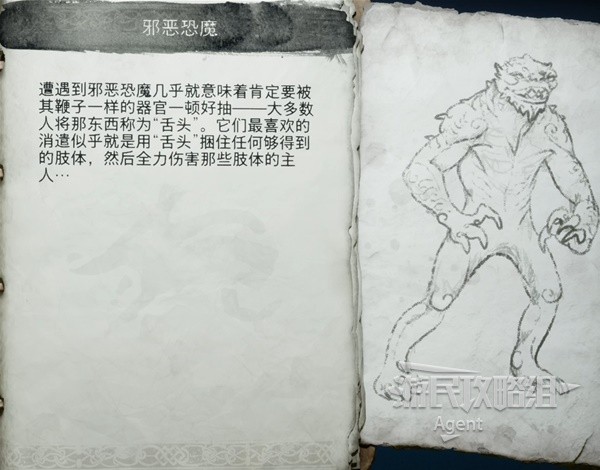 邪恶恐魔
遭遇到邪恶恐魔几乎就意味着肯定要被
其鞭子一样的器官一顿好抽——大多数
人将那东西称为“舌头”。它们最喜欢的
消遣似乎就是用“舌头”捆住任何够得到
的肢体，然后全力伤害那些肢体的主
人…
游民攻略组
Agent